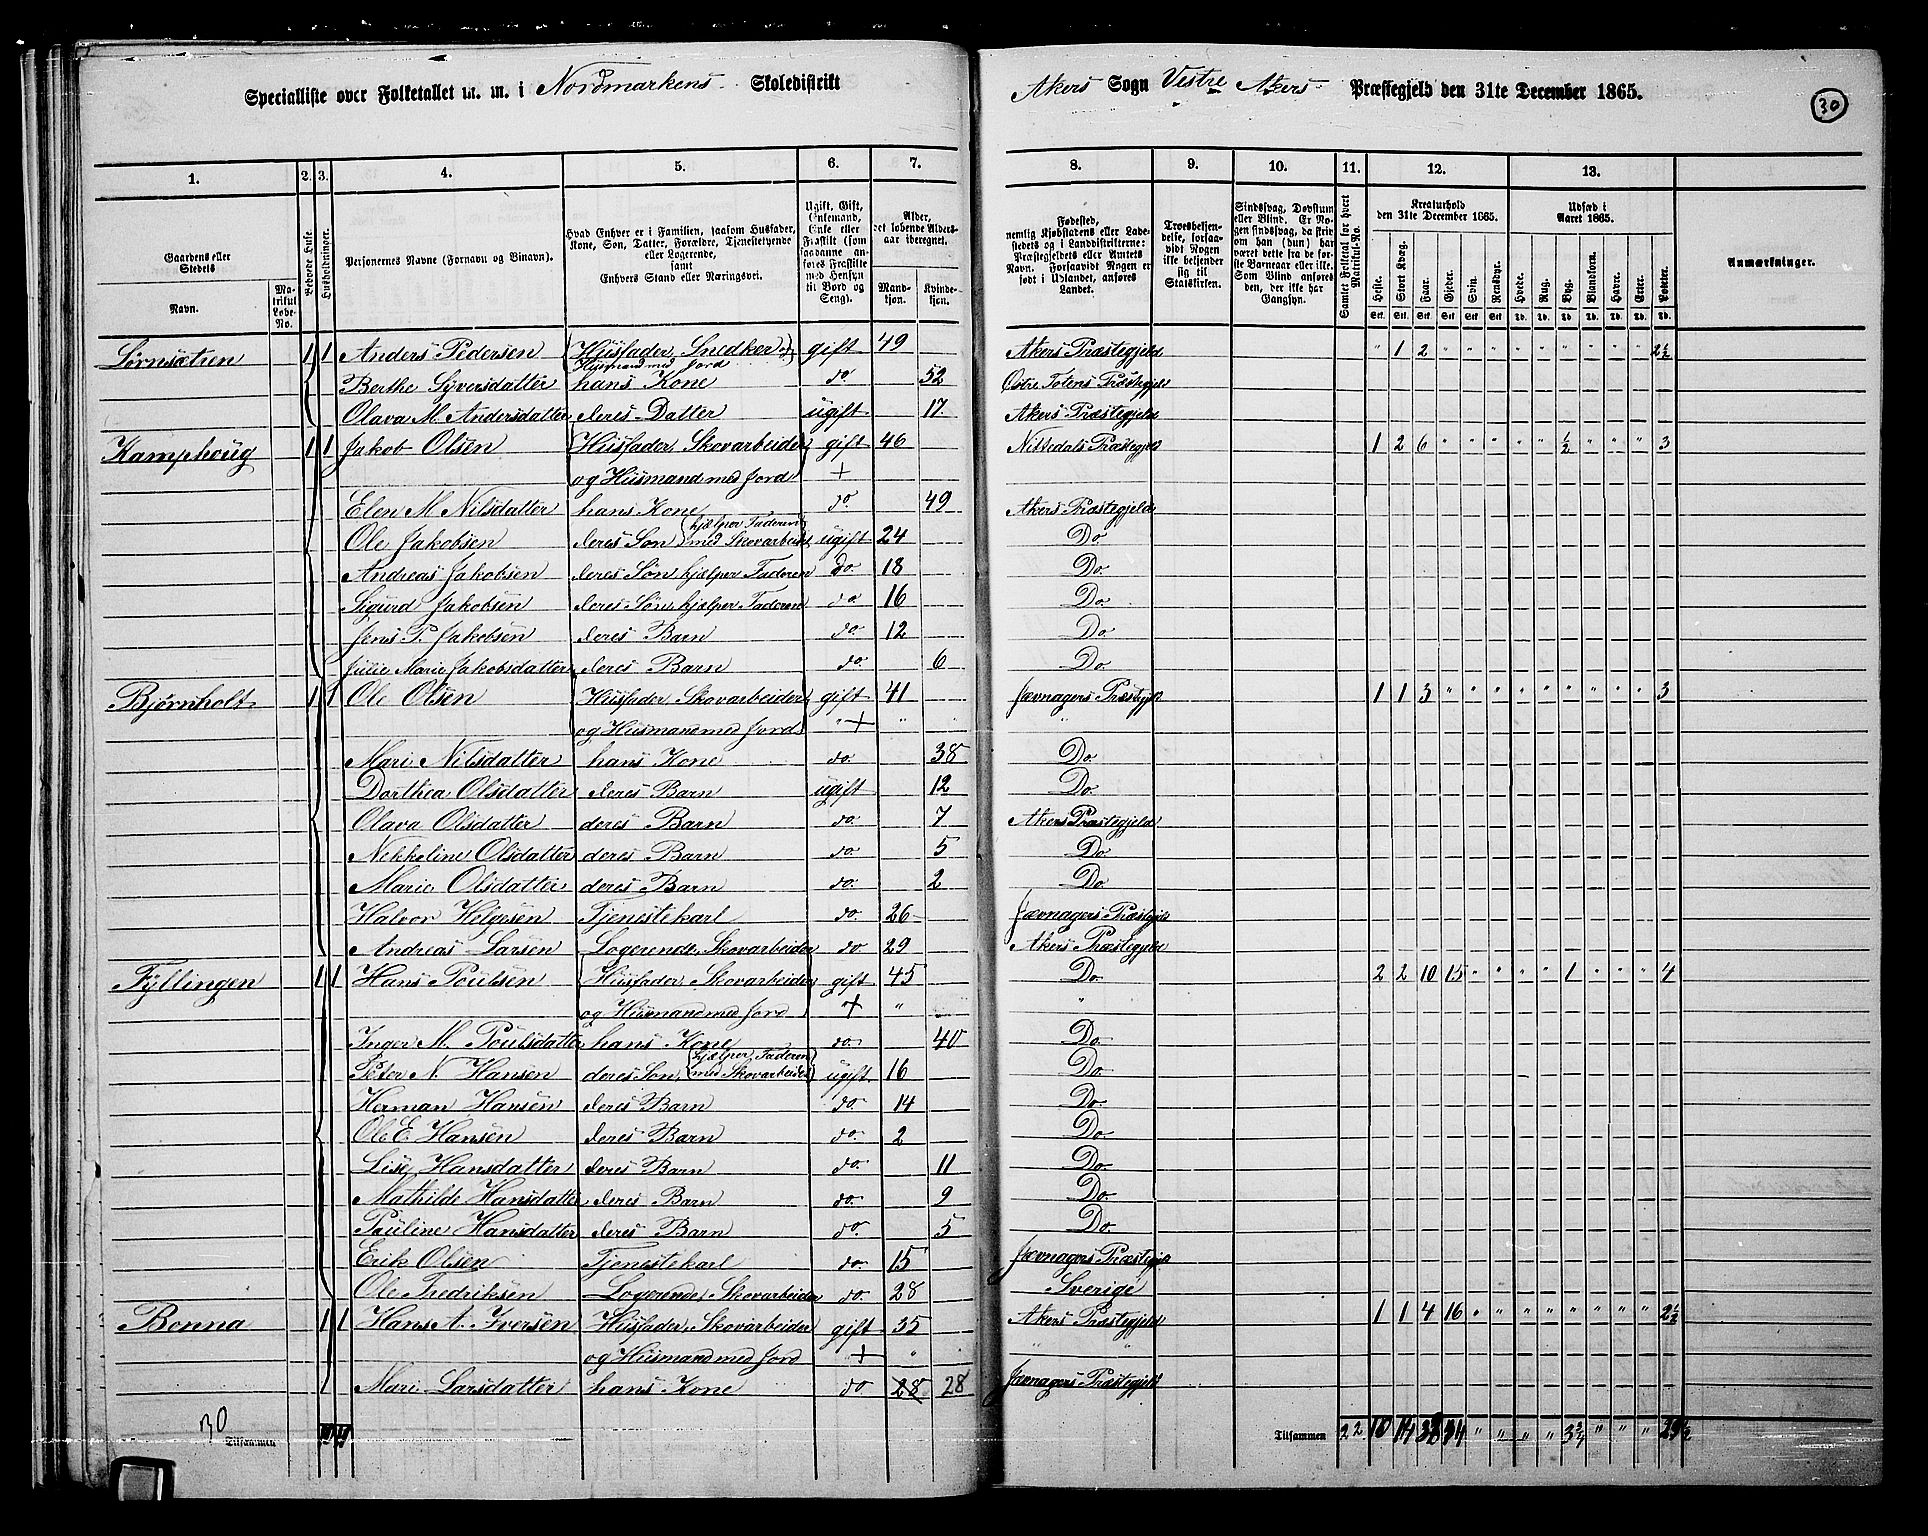 Specialliste over Folketallet m. m. i Nordmarkens Skoledistrikt Akers Sogn Vestre Akers Præstegjeld den 31te December 1865. 30
1. 2. 3. 4. 5. 6. 7. 8. 9. 10. 11. 12. 13.
Gaardens eller Stedets
Navn.
Matrikul Løbe-No.
Beboede Huse
Husholdninger.
Personernes Navne (Fornavn og Binavn).
Hvad Enhver er i Familien, saasom Husfader, Kone, Søn, Datter, Forældre, Tjenestetyende eller Logerende, samt Enhvers Stand eller Næringsvei.
Ugift, Gift, Enkemand, Enke eller Fraskilt (som saadanne anføres Fraskilte med Hensyn til Bord og Seng).
Alder, det løbende Aldersaar iberegnet.
Mandkjøn. Kvindekjøn.
Fødested, nemlig Kjøbstadens eller Ladestedets og i Landdistrikterne: Præstegjeldets eller Amtets Navn. Forsaavidt Nogen er født i Udlandet, anføres Landet.
Troesbekjendelse, forsaavidt Nogen ikke bekjender sig til Statskirken.
Sindssvag, Døvstum eller Blind. Er Nogen sindssvag, da skrives om han (hun) har været dette fra de første Barneaar eller ikke. Som Blind anføres den, der ikke har Gangsyn.
Samlet Folketal for hvert Matrikul-No.
Kreaturhold den 31te December 1865.
Heste. Stort Kvæg. Faar. Gjeder. Svin. Rensdyr.
Udsæd i Aaret 1865.
Hvede. Rug. Byg. Blandkorn. Havre. Erter. Poteter.
Anmærkninger.
Lørnsætren 1 1 Anders Pedersen Huusfader, Snedker og gift 49 Akers Præstegjeld " 1 2 " " " " " " " " " 2½
Huusmand med Jord
Berthe Syversdatter hans Kone do 52 Østre Totens Præstegjeld
Olava M. Andersdatter deres Datter ugift 17. Akers Præstegjeld
Kamphoug 1 1 Jakob Olsen Huusfader, Skovarbeider gift 46 Nittedals Præstegjeld 1 2 6 " " " " " ½ " " " 3
og Huusmand med Jord +
Elen M. Nilsdatter hans Kone do 49 Akers Præstegjeld
Ole Jakobsen deres Søn hjælper Faderen med Skovarbeidet ugift 24 Do.
Andreas Jakobsen deres Søn, hjælper Faderen do. 18 Do.
Sigurd Jakobsen deres Søn, hjælper Faderen do 16 Do.
Jens P. Jakobsen deres Barn do. 12 Do.
Julie Marie Jakobsdatter deres Barn do. 6 Do.
Bjørnholt 1 1 Ole Olsen Huusfader, Skovarbeider gift 41 Jevnagers Præstegjeld 1 1 3 " " " " " " " " " 3
og Huusmand med Jord " + " " "
Mari Nilsdatter hans Kone do. 38 Do.
Dorthea Olsdatter deres Barn ugift 12 Do.
Olava Olsdatter deres Barn do. 7 Akers Præstegjeld
Nekkeline Olsdatter deres Barn do. 5 Do.
Marie Olsdatter deres Barn do. 2 Do.
Halvor Helgesen Tjenestekarl do. 26 Jævnagers Præstegjeld
Andreas Larsen Logerende, Skovarbeider do 29 Akers Præstegjeld
Fyllingen 1 1 Hans Poulsen Huusfader, Skovarbeider gift 45 Do. 2 2 10 15 " " " " 1 " " " 4
og Huusmand med Jord + " " "
Inger M. Poulsdatter hans Kone do. 40 Do.
Peter N. Hansen deres Søn, hjælper Faderen med Skovarbeidet ugift 16 Do.
Herman Hansen deres Barn do. 14 Do.
Ole E. Hansen deres Barn do. 2 Do.
Lise Hansdatter deres Barn do. 11 Do.
Mathilde Hansdatter deres Barn do. 9 Do.
Pauline Hansdatter deres Barn do. 5 Do.
Erik Olsen Tjenestekarl do. 15 Jævnagers Præstegjeld
Ole Fredriksen Logerende, Skovarbeider do. 28 Sverige
Bonna 1 1 Hans A. Iversen Huusfader, Skovarbeider gift 35 Akers Præstegjeld 1 1 4 16 " " " " " " " " 2½
og Huusmand med Jord " + " " "
Mari Larsdatter hans Kone do 28 28 Jævnagers Præstegjeld
30 Tilsammen Tilsammen 22 10 14 38 34 " " " " 3¾ " " " 29½